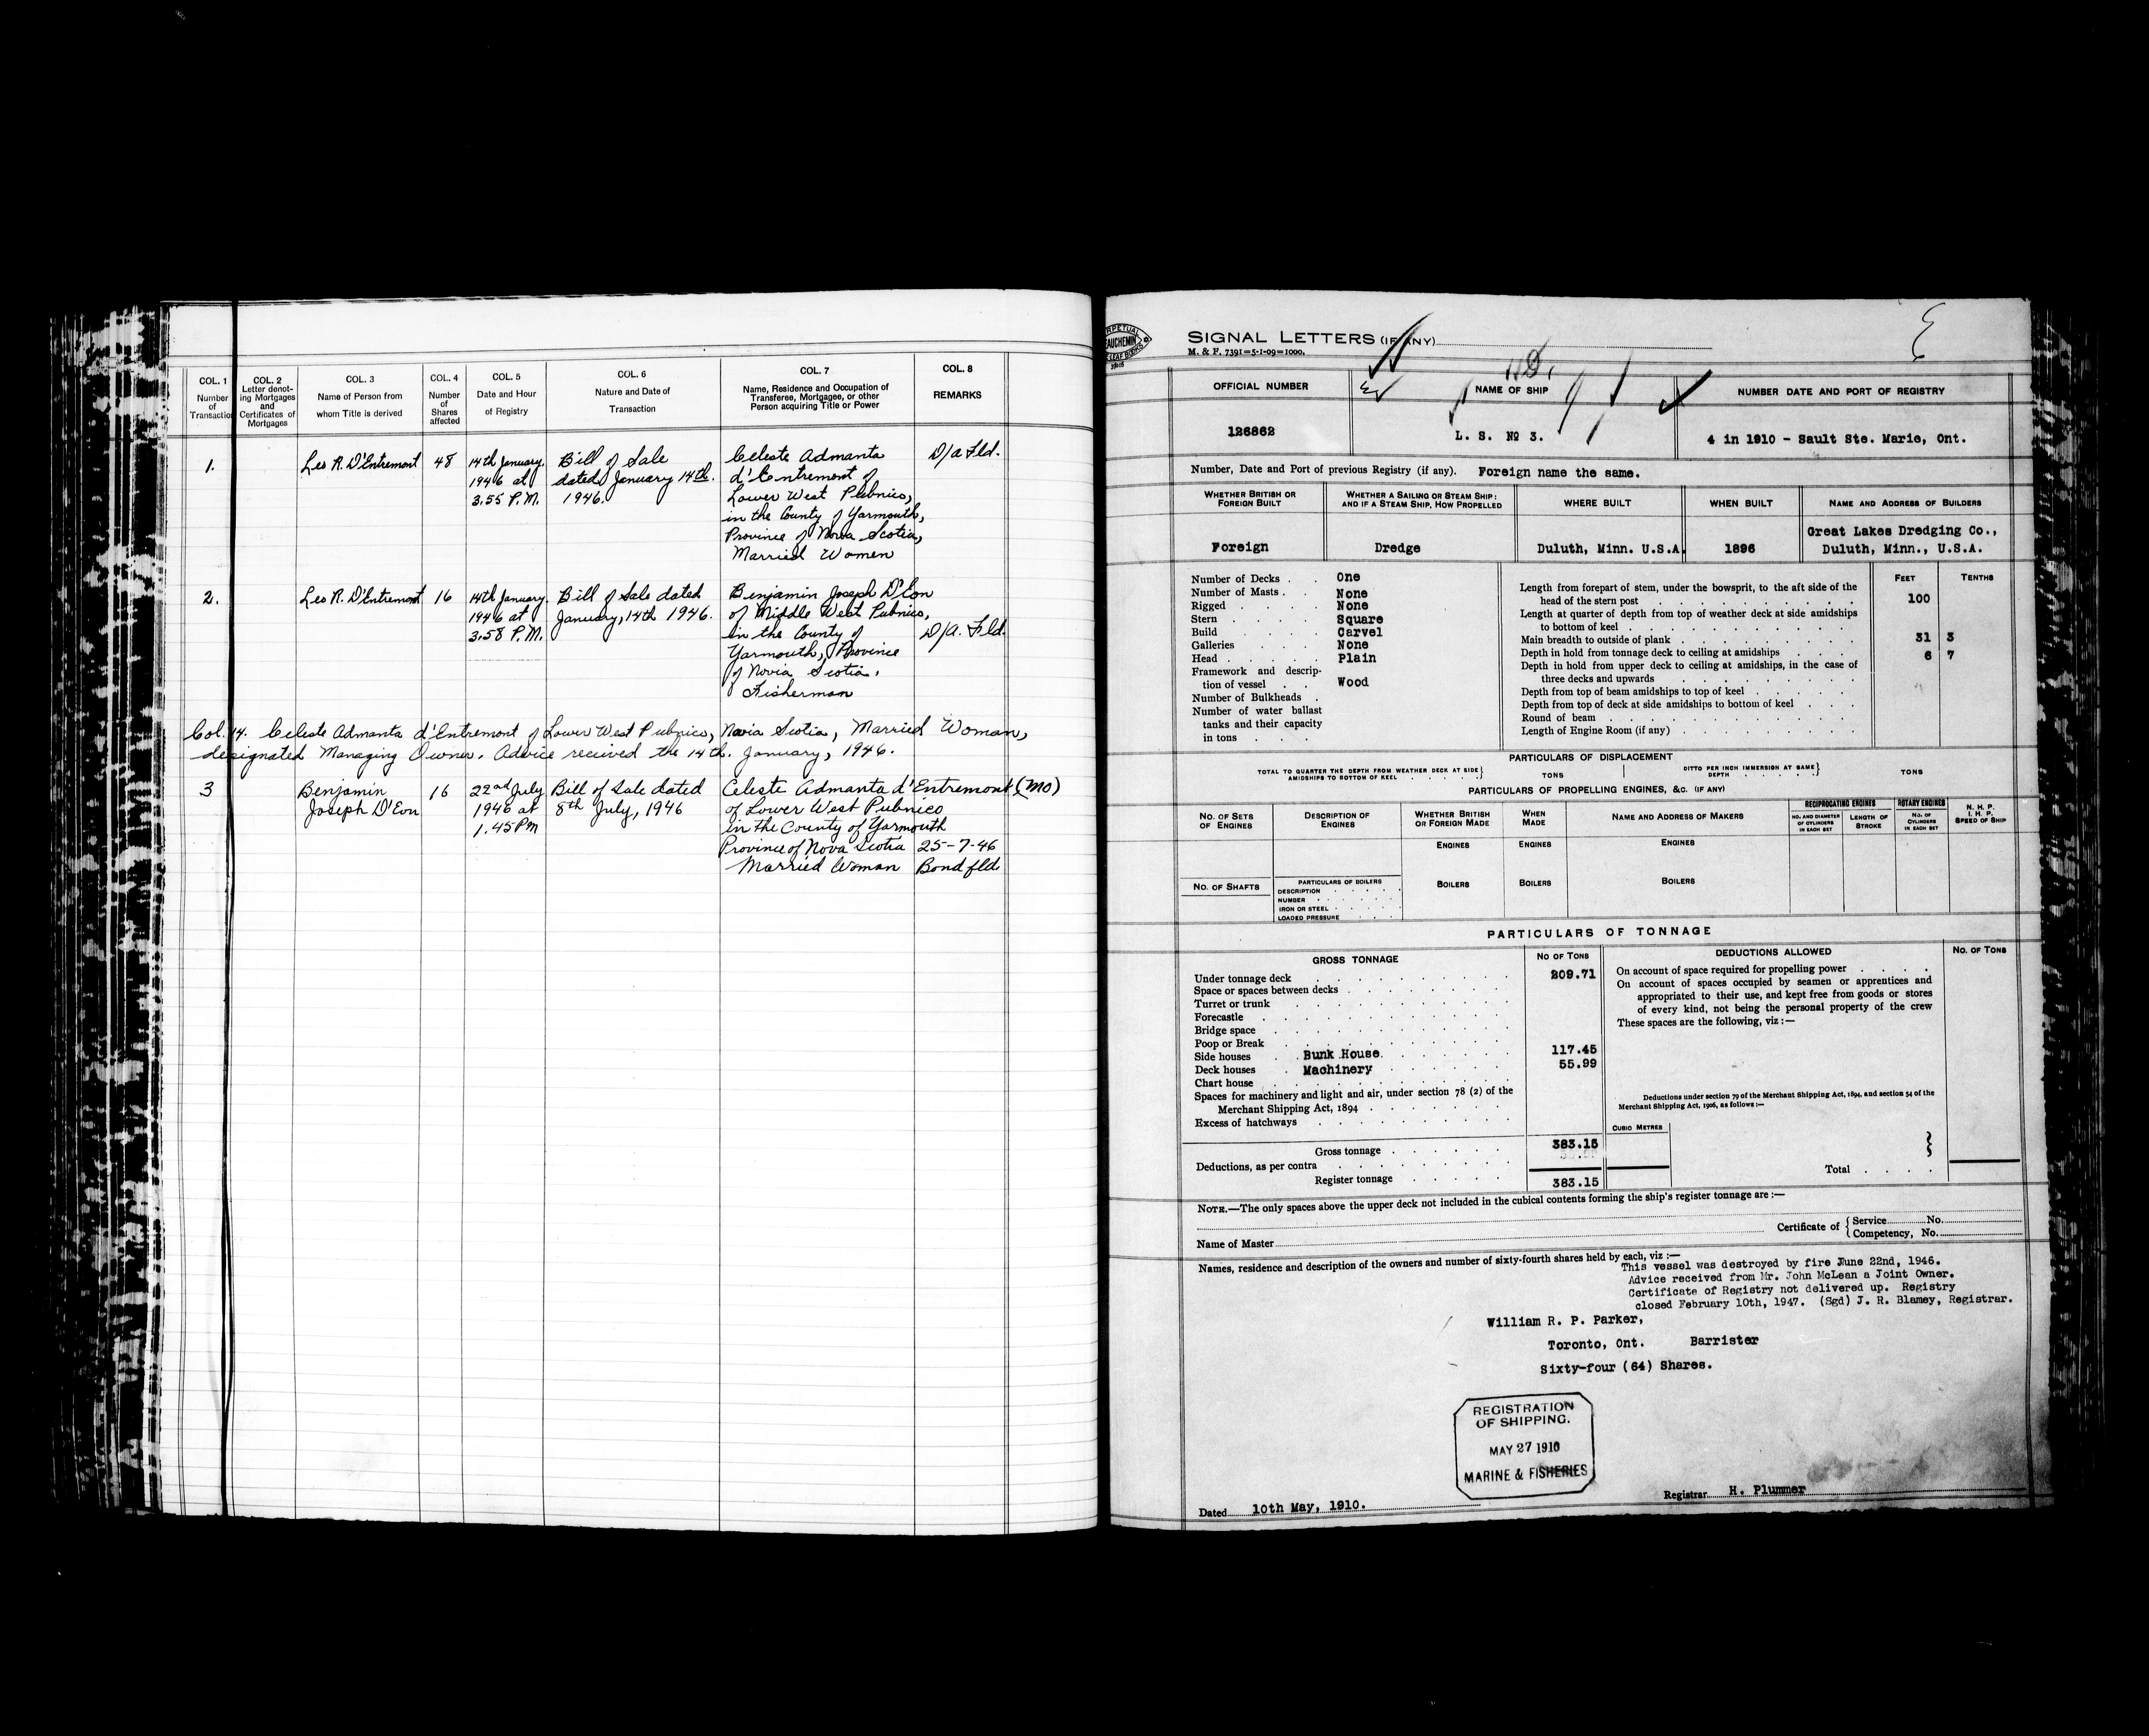 COL. 1
Number
of
Transaction
COL. 2
Letter denot-
ing Mortgages
and
Certificates of
Mortgages
COL. 3
Name of Person from
whom Title is derived
COL. 4
Number
of
Shares
affected
COL. 5
Date and Hour
of Registry
COL. 6
Nature and Date of
Transaction
COL. 7
Name, Residence and Occupation of
Transferee, Mortgagee, or other
Person acquiring Title or Power
COL. 8
REMARKS
1.
Leo R. D'Entremont
48
14th January.
1946 at
3.55 P.M.
Bill of Sale
dated January 14th.
1946.
Celeste Admanta
d'Entremont of
Lower West Pubnico,
in the County of Yarmouth,
Province of Nova Scotia,
Married Women
D/a Fld.
2.
Leo R. D'Entremont
16
14th January.
1946 at
3.58 P.M.
Bill of Sale dated
January, 14th 1946.
Benjamin Joseph D'Eon
of Middle West Pubnico,
in the County of
Yarmouth, Province
of Novia Scotia.
Fisherman
D/A. Fld.
Col. 14. Celeste Admanta d'Entremont of Lower West Pubnico, Novia Scotia, Married Woman,
designated Managing Owner. Advice received the 14th. January, 1946.
3
Benjamin
Joseph D'Eon
16
22nd July
1946 at
1.45 PM
Bill of Sale dated
8th July, 1946
Celeste Admanta d'Entremont (MO)
of Lower West Pubnico
in the County of Yarmouth
Province of Nova Scotia
Married Woman
25-7-46
Bond fld.
SIGNAL LETTERS (IF ANY)
M. & F. 7391=5-1-09=1000.
OFFICIAL NUMBER
126862
NAME OF SHIP
L. S. № 3.
NUMBER DATE AND PORT OF REGISTRY
4 in 1910 - Sault Ste. Marie, Ont.
Number, Date and Port of previous Registry (if any). Foreign name the same.
WHETHER BRITISH OR
FOREIGN BUILT
Foreign
WHETHER A SAILING OR STEAM SHIP:
AND IF A STEAM SHIP, HOW PROPELLED
Dredge
WHERE BUILT
Duluth, Minn. U.S.A.
WHEN BUILT
1896
NAME AND ADDRESS OF BUILDERS
Great Lakes Dredging Co.,
Duluth, Minn., U.S.A.
Number of Decks . . One
Number of Masts . . None
Rigged . . . . None
Stern . . . . Square
Build . . . . Carvel
Galleries . . . None
Head . . . . . Plain
Framework and descrip-
tion of vessel . . Wood
Number of Bulkheads .
Number of water ballast
tanks and their capacity
in tons . . .
FEET TENTHS
Length from forepart of stem, under the bowsprit, to the aft side of the
head of the stern post 100
Length at quarter of depth from top of weather deck at side amidships
to bottom of keel
Main breadth to outside of plank 31 3
Depth in hold from tonnage deck to ceiling at amidships 6 7
Depth in hold from upper deck to ceiling at amidships, in the case of
three decks and upwards
Depth from top of beam amidships to top of keel
Depth from top of deck at side amidships to bottom of keel
Round of beam
Length of Engine Room (if any)
PARTICULARS OF DISPLACEMENT
TOTAL TO QUARTER THE DEPTH FROM WEATHER DECK AT SIDE
AMIDSHIPS TO BOTTOM OF KEEL
TONS
DITTO PER INCH IMMERSION AT SAME
DEPTH
TONS
PARTICULARS OF PROPELLING ENGINES, &C. (IF ANY)
NO. OF SETS
OF ENGINES
DESCRIPTION OF
ENGINES
WHETHER BRITISH
OR FOREIGN MADE
WHEN
MADE
NAME AND ADDRESS OF MAKERS
RECIPROCATING ENGINES
NO. AND DIAMETER
OF CYLINDERS
IN EACH SET
LENGTH OF
STROKE
ROTARY ENGINES
NO. OF
CYLINDERS
IN EACH SET
N. H. P.
I. H. P.
SPEED OF SHIP
ENGINES
ENGINES
ENGINES
NO. OF SHAFTS
PARTICULARS OF BOILERS
DESCRIPTION
NUMBER
IRON OR STEEL
LOADED PRESSURE
BOILERS
BOILERS
BOILERS
PARTICULARS OF TONNAGE
GROSS TONNAGE
NO OF TONS
Under tonnage deck 209.71
Space or spaces between decks
Turret or trunk
Forecastle
Bridge space
Poop or Break
Side houses Bunk House 117.45
Deck houses Machinery 55.99
Chart house
Spaces for machinery and light and air, under section 78 (2) of the
Merchant Shipping Act, 1894
Excess of hatchways
Gross tonnage 383.15
Deductions, as per contra
Register tonnage 383.15
DEDUCTIONS ALLOWED
NO. OF TONS
On account of space required for propelling power
On account of spaces occupied by seamen or apprentices and
appropriated to their use, and kept free from goods or stores
of every kind, not being the personal property of the crew
These spaces are the following, viz :—
Deductions under section 79 of the Merchant Shipping Act, 1894, and section 54 of the
Merchant Shipping Act, 1906, as follows :—
CUBIC METRES
Total
NOTE.—The only spaces above the upper deck not included in the cubical contents forming the ship's register tonnage are :—
Name of Master
Certificate of { Service No.
Competency, No.
Names, residence and description of the owners and number of sixty-fourth shares held by each, viz :—
This vessel was destroyed by fire June 22nd, 1946.
Advice received from Mr. John McLean a Joint Owner.
Certificate of Registry not delivered up. Registry
closed February 10th, 1947. (Sgd) J. R. Blamey, Registrar.
William R. P. Parker,
Toronto, Ont. Barrister
Sixty-four (64) Shares.
REGISTRATION
OF SHIPPING.
MAY 27 1910
MARINE & FISHERIES
Dated 10th May, 1910.
Registrar H. Plummer